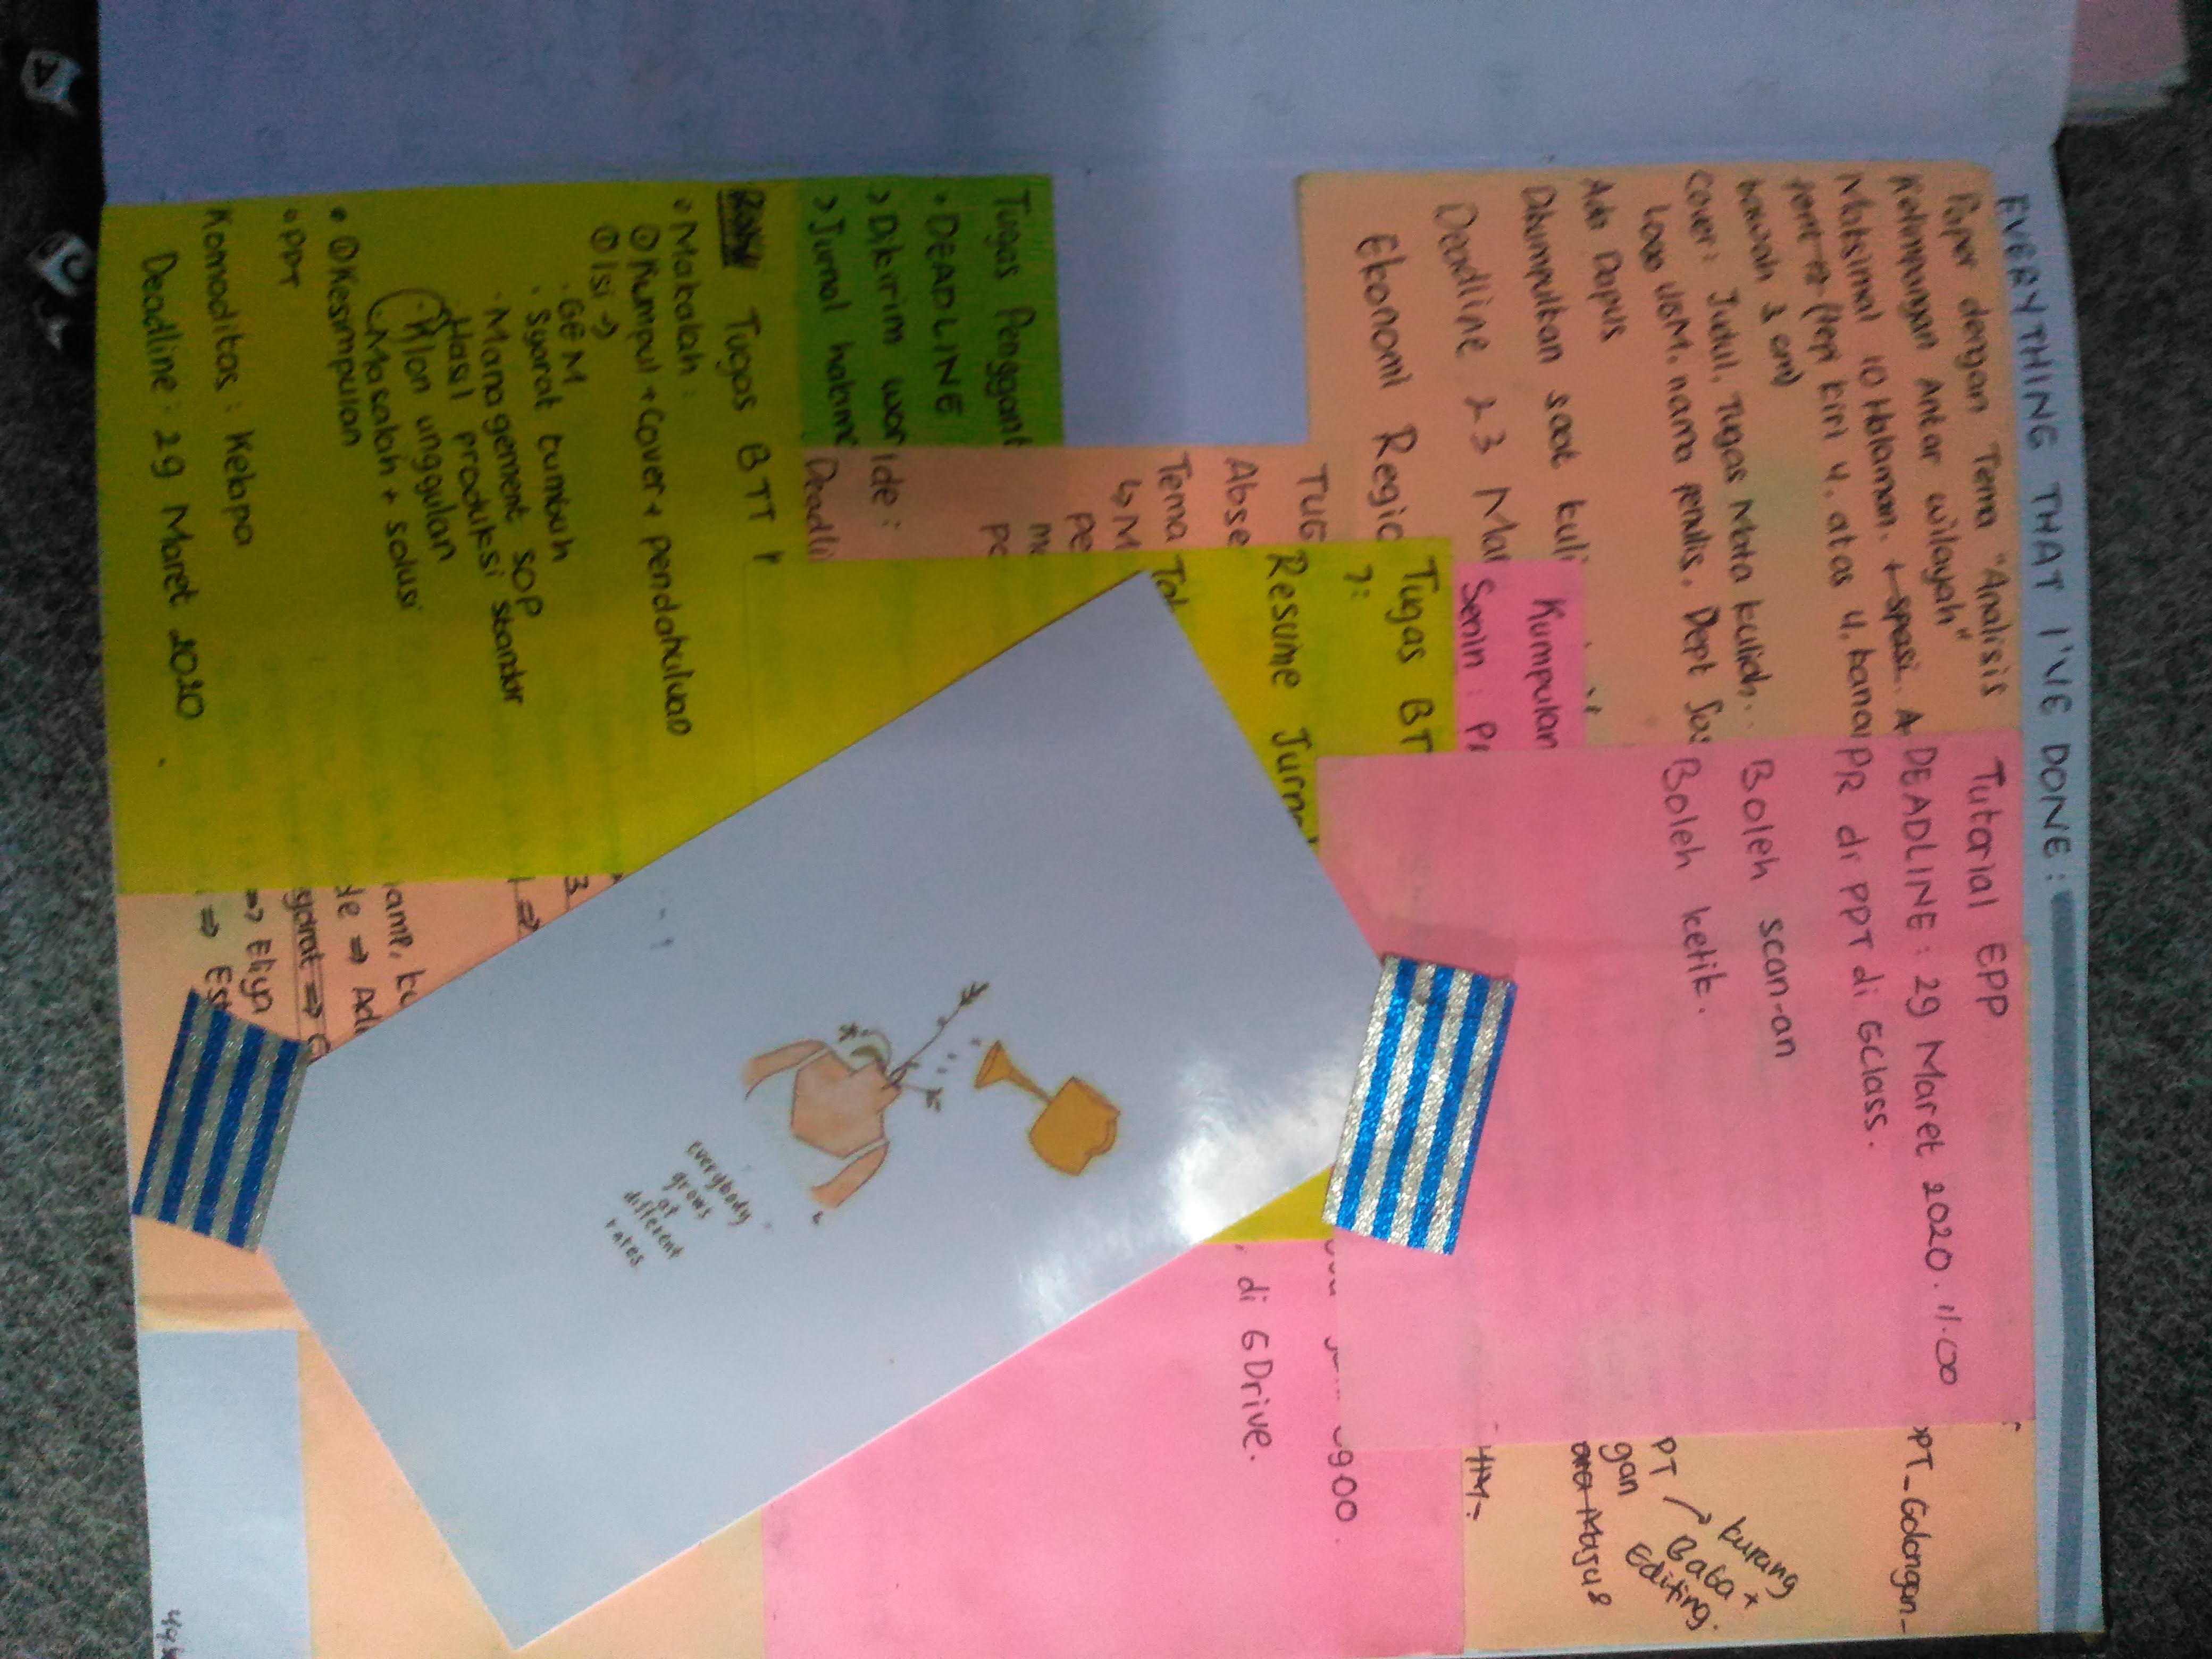 EVERYTHING THAT I'VE DONE :
Paper dengan Tema "Analisis
Ketimpangan Antar wilayah"
Maksimal 10 Halaman. 1 spasi. A
font 12 (tepi kiri 4, atas 4, kanan
bawah 3 cm)
Cover : Judul, Tugas Mata kuliah..
Logo UGM, nama penulis, Dept Sos
Ada Dapus
Dikumpulkan saat kuli
Deadline 23 Mar
Ekonomi Regio
Tutorial EPP
DEADLINE : 29 Maret 2020. 11.00
PR dr PPT di GClass.
Boleh scan-an
Boleh ketik.
PPT_Golongan_
PT
gan
kurang
Baba x
Editing.
Kumpulan
Senin :
Tugas BT
?:
Resume Jurnal
0900
, di GDrive.
TUG
Abse
Tema
↳ M
Pe
me
Pe
Ide :
Deadli
Tugas Pengant
• DEADLINE
> Dikirim wor
> Jurnal halam
Tugas BTT
• Makalah :
① Kumpul + Cover + pendahuluan
① Isi →
• GEM
• Syarat tumbuh
• Management SOP
• Hasil produksi standar
• Klon unggulan
• Masalah + solusi
• ① Kesimpulan
• PPT
Komoditas : Kelapa
Deadline : 29 Maret 2020
3
amp, ku
de ⇒ Adi
ydrat ⇒ G
⇒ Eliya
⇒ Est
everybody
grows
at
different
rates